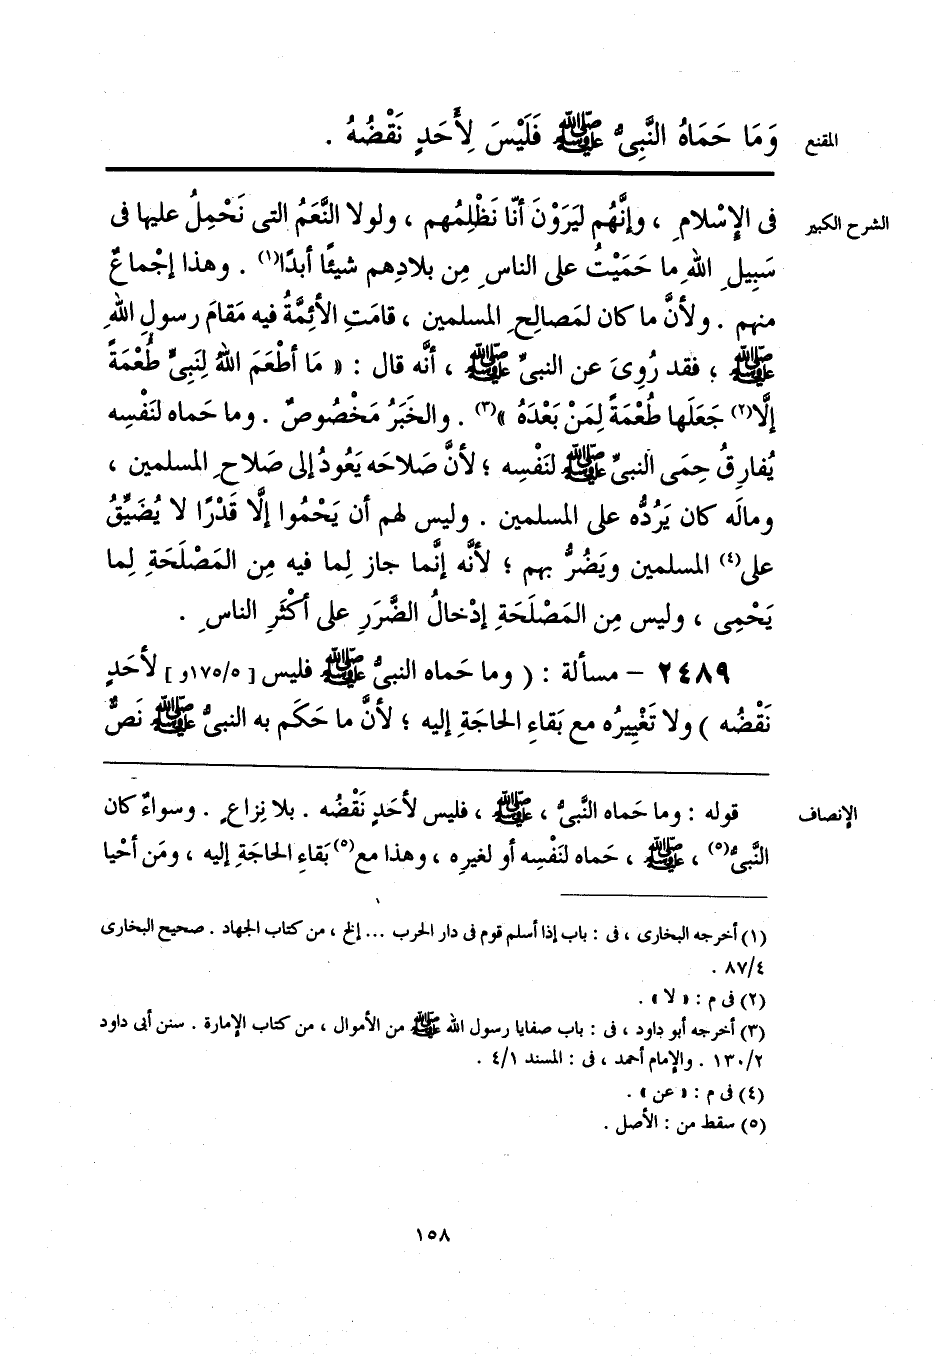 المقنع
وَمَا حَمَاهُ النَّبِىُّ ﷺ فَلَيْسَ لِأَحَدٍ نَقْضُهُ .
الشرح الكبير
فى الإِسْلامِ ، وإنَّهُم ليَرَوْنَ أنّا نَظْلِمُهم ، ولولا النَّعَمُ التى نَحْمِلُ عليها فى
سَبِيلِ اللهِ ما حَمَيْتُ على الناسِ مِن بلادِهم شيئًا أبدًا(١) . وهذا إجْماعٌ
منهم . ولأنَّ ما كان لمَصالِحِ المسلمين ، قامَتِ الأئِمَّةُ فيه مَقامَ رسولِ اللهِ
ﷺ ؛ فقد رُوِىَ عن النبىِّ ﷺ ، أنَّه قال : « مَا أطْعَمَ اللهُ لِنَبِىٍّ طُعْمَةً
إلَّا(٢) جَعَلَها طُعْمَةً لِمَنْ بَعْدَهُ »(٣) . والخَبَرُ مَخْصُوصٌ . وما حَماه لنَفْسِه
يُفارِقُ حِمَى النبىِّ ﷺ لنَفْسِه ؛ لأنَّ صَلاحَه يَعُودُ إلى صَلاحِ المسلمين ،
ومالَه كان يَرُدُّه على المسلمين . وليس لهم أن يَحْمُوا إلَّا قَدْرًا لا يُضَيِّقُ
على(٤) المسلمين ويَضُرُّ بهم ؛ لأنَّه إنَّما جاز لِما فيه مِن المَصْلَحَةِ لِما
يَحْمِى ، وليس مِن المَصْلَحَةِ إدْخالُ الضَّرَرِ على أكْثَرِ الناسِ .
٢٤٨٩ – مسألة : ( وما حَماه النبىُّ ﷺ فليس [ ١٧٥/٥و ] لأحَدٍ
نَقْضُه ) ولا تَغْيِيرُه مع بَقاءِ الحاجَةِ إليه ؛ لأنَّ ما حَكَم به النبىُّ ﷺ نَصٌّ
الإنصاف
قوله : وما حَماه النَّبِىُّ ، ﷺ ، فليس لأحَدٍ نَقْضُه . بلا نِزاعٍ . وسواءٌ كان
النَّبِىُّ(٥) ، ﷺ ، حَماه لنَفْسِه أو لغيرِه ، وهذا مع(٥) بَقاءِ الحاجَةِ إليه ، ومَن أحْيا
(١) أخرجه البخارى ، فى : باب إذا أسلم قوم فى دار الحرب ... إلخ ، من كتاب الجهاد . صحيح البخارى
٨٧/٤ .
(٢) فى م : « لا » .
(٣) أخرجه أبو داود ، فى : باب صفايا رسول الله ﷺ من الأموال ، من كتاب الإمارة . سنن أبى داود
١٣٠/٢ . والإمام أحمد ، فى : المسند ٤/١ .
(٤) فى م : « عن » .
(٥) سقط من : الأصل .
١٥٨